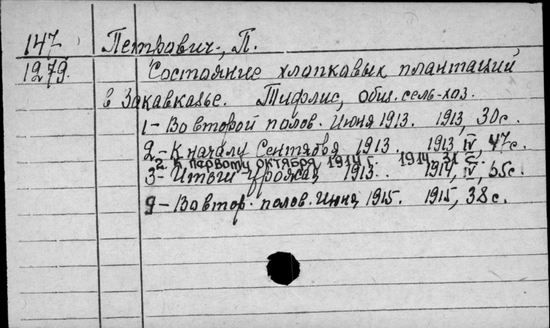 147 Петрович, П.
1279. Состояние хлопковых плантаций
в Закавказье. Тифлис, общ. сель-хоз.
1 - Во второй полов. Июня 1913. 1913, 30 с.
2 - К началу Сентября 1913. 1913, IV, 47 с.
2. К первому октября, 1914 г. 1914. 31 с.
3 - Итоги урожая 1913. 1914, IV, 55 с.
9 - Во втор. полов. Июня 1915. 1915, 38 с.